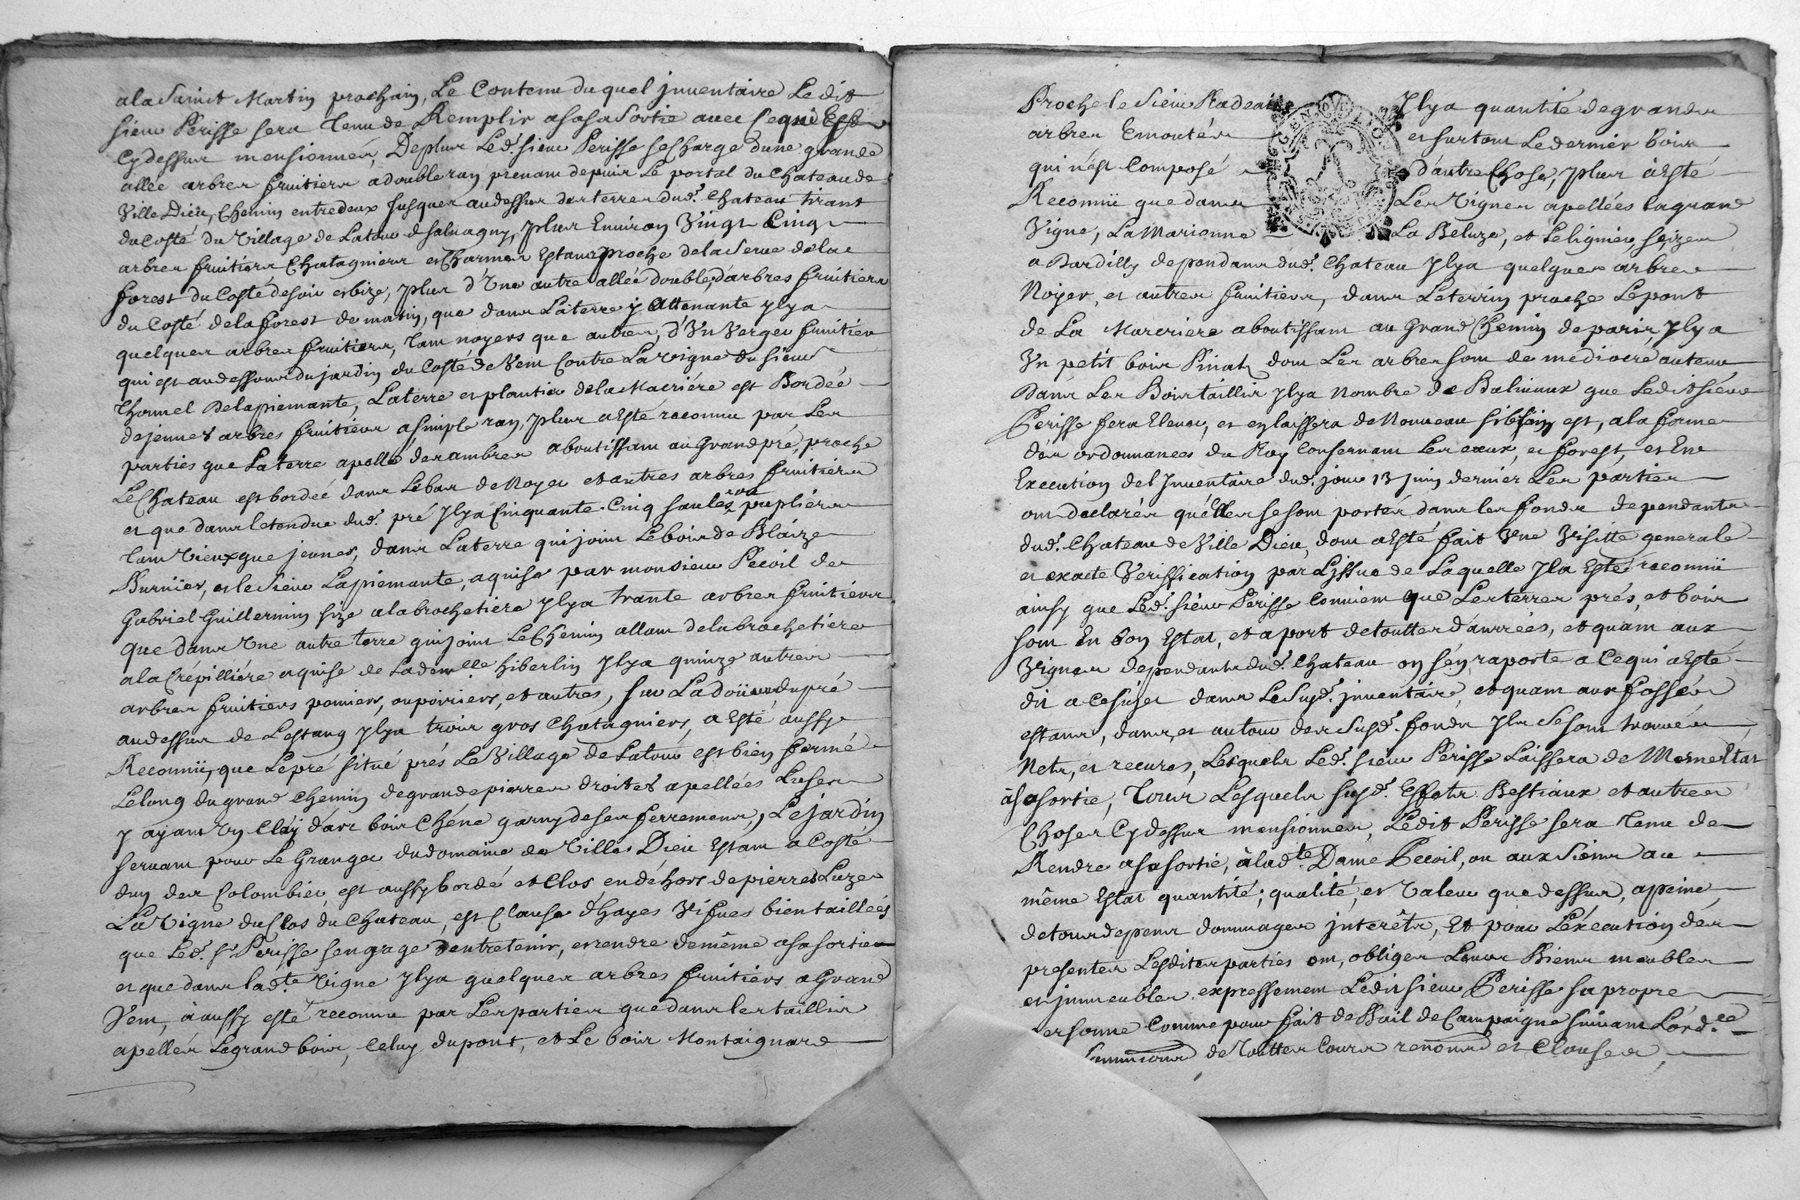 ala Sainct Martin prochain, Le Contenu du quel jnuentaire Le dit
sieur Périsse sera Tenu de Remplir asasa Sortie auec Ce qui Est
Cy dessus mensionnéz, De plus Led. sieur Perisse se Charge d'une grande
allée arbres fruitiers a double ran prenant depuis Le portal du Chateau de
Ville Dieu, Chemin entredeux jusques audessus des terres dud. Chateau tirant
du Costé du Village de Latour de salvagny, plus Enuiron Vingt Cinq
arbres fruitiers Chatagniers et Charmes Estans proche de la Serue de la
forest du Costé de soir et bize, plus d'Une autre allée double, d'arbres fruitiers
du Costé de la forest de matin, que dans La terre y attenante Jl y a
quelques arbres fruitiers, Tant noyers que autres, d'Un Verger fruitier
qui est au dessous du jardin du Costé de Vent Contre La Vigne du sieur
Thomel De lapiemante, La terre et plantier de la Macriére est Bordée
de jeunes arbres fruitiers a simple ran, plus a Esté reconnu par Les
parties que La terre apellé des ambres aboutissant au Grand pré, proche
Le Chateau est bordée dans Le bas de Noyer et autres arbres fruitiers
et que dans letendue dud. pré Jl y a Cinquante Cinq saules ou pupliers
Tant Vieux que jeunes, dans La terre qui joint Le bois de Blaize
Burnier, et le Sieur Lapiemante, aquise par monsieur Pecoil de
Gabriel Guillermin size a la brochetiére Jl y a trante arbres fruitiers
que dans Une autre terre qui joint Le Chemin allant de la brochetiére
a la Crépilliére aquise de La demlle hiberlin Jl y a quinze autres
arbres fruitiers pomiers, ou poiriers, et autres, sur La doüire du pré
au dessus de Lestang Jl y a trois gros Chatagniers, a Esté aussy
Reconnü, que Le pré situé prés Le Village de Latour est bien fermé
Le long du grand Chemin de grande pierres droites apellées Luses
y ayant Un Cléy dans bois Chéne garny de ses ferremens, Le jardin
seruant pour Le Granger du domaine de Ville Dieu Estant a Costé
d'un des Colombier, est aussy bordé et Clos en déhors de pierres Luzes
La Vigne du Clos du Chateau, est Clause d'hayes Vifues bien taillées
que Led. sr. Perisse sengage d'entretenir, et rendre de même a sa sortie
et que dans lad.te Vigne Jl y a quelques arbres fruitiers a Grand
Vent, a aussy esté reconnu par Les parties que dans les taillis
apellés Le grand bois, Celuy du pont, et Le bois Montaignard
Proche le Sieur Radeair Jl y a quantité de grands
arbres Emoutés et sur tout Le dernier bois
qui n'est Composé d'autre Chose, plus a Esté
Reconnü que dans Les Vignes apellées la grand
Vigne, La Marionne La Beluze, et Le lignier, seizes
a Dardilly dependans dud. Chateau Jl y a quelques arbres
Noyer, et autres fruitiers, dans Le terrin proche Le pont
de La Marcriere aboutissant au Grand Chemin de paris Jl y a
Un petit bois Pinat dont Les arbres sont de mediocre auteur
Dans Les Bois taillis Jl y a Nombre de Baliuaux que Le dit sieur
Perisse fera Eleuer, et en laissera de Nouveau si besoin est, a la forme
des ordonnances du Roy Consernant Les eaux, et forest, et En
Execution de l'Jnuentaire dud. jour 13 juin dernier Les parties
ont declarés qu'elles se sont portés dans les fonds dependants
dud. Chateau de Ville Dieu, dont a Esté fait Une Visitte generale
et exacte Veriffication par Lissue de Laquelle Jl a Esté reconnü
ainsy que Led. sieur Périsse Conuient que Les terres prés, et bois
sont En bon Estat, et aport de toutte danrées, et quant aux
Vignes dependants dud. Chateau on sén raporte a Ce qui a Esté
dit a Ce sujet dans Le susd. jnuentaire, et quant aux fossés
estans, dans, et autour des susd. fonds Jls se sont trouués
Nets, et recurés, Lesquels Led. sieur Périsse Laissera de Meme Etat
à sa sortie, Tous Lesquels susd. Effets Bestiaux et autres
Choses Cy dessus mensionnés, Ledit Périsse sera Tenu de
Rendre a sa sortie, à lad.te Dame Pecoil, ou aux Siens au
même Estat quantité; qualité, et Valeur que dessus, a peine
de tous depens dommages jnterêts, Et pour L'éxecution dés
presentes Lesdites parties ont, obliger Leurs Biens meubles
et jmmeubles expressement Ledit sieur Périsse sa propre
ersonne Comme pour fait de Bail de Campaigne suiuant L'ord.ce
de Toutter Cours renond et Clauses,